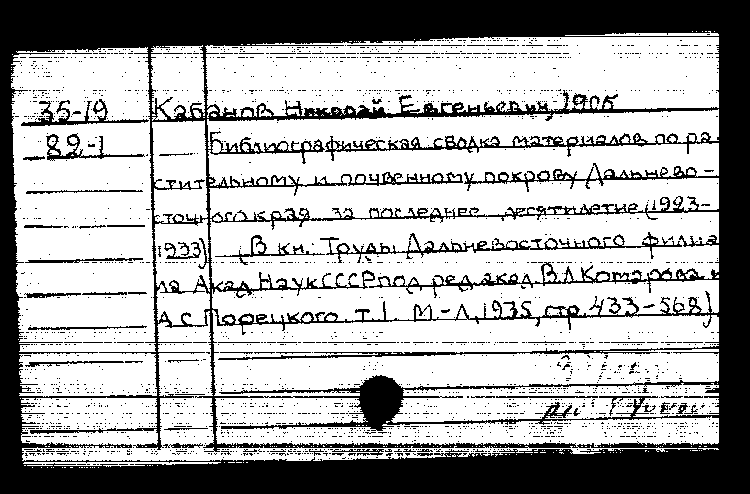 35-19 Кабанов Николай Евгеньевич, 1905
82-1 Библиографическая сводка материалов по ра
стительному и почвенному покрову Дальнево-
сточного края за последнее десятилетие (1923-
1933) (В кн.: Труды Дальневосточного филиа
ла Акад. Наук СССР под ред. акад. В Л Комарова и
А С Порецкого. т. I. М.-Л., 1935, стр. 433-568)